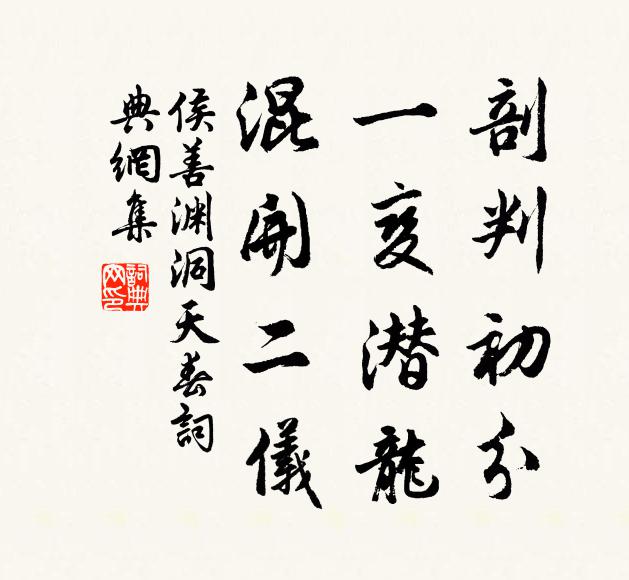 剖判初分
一变潜龍
混開二儀
侯善渊洞天春詞
典網集
詞典网印